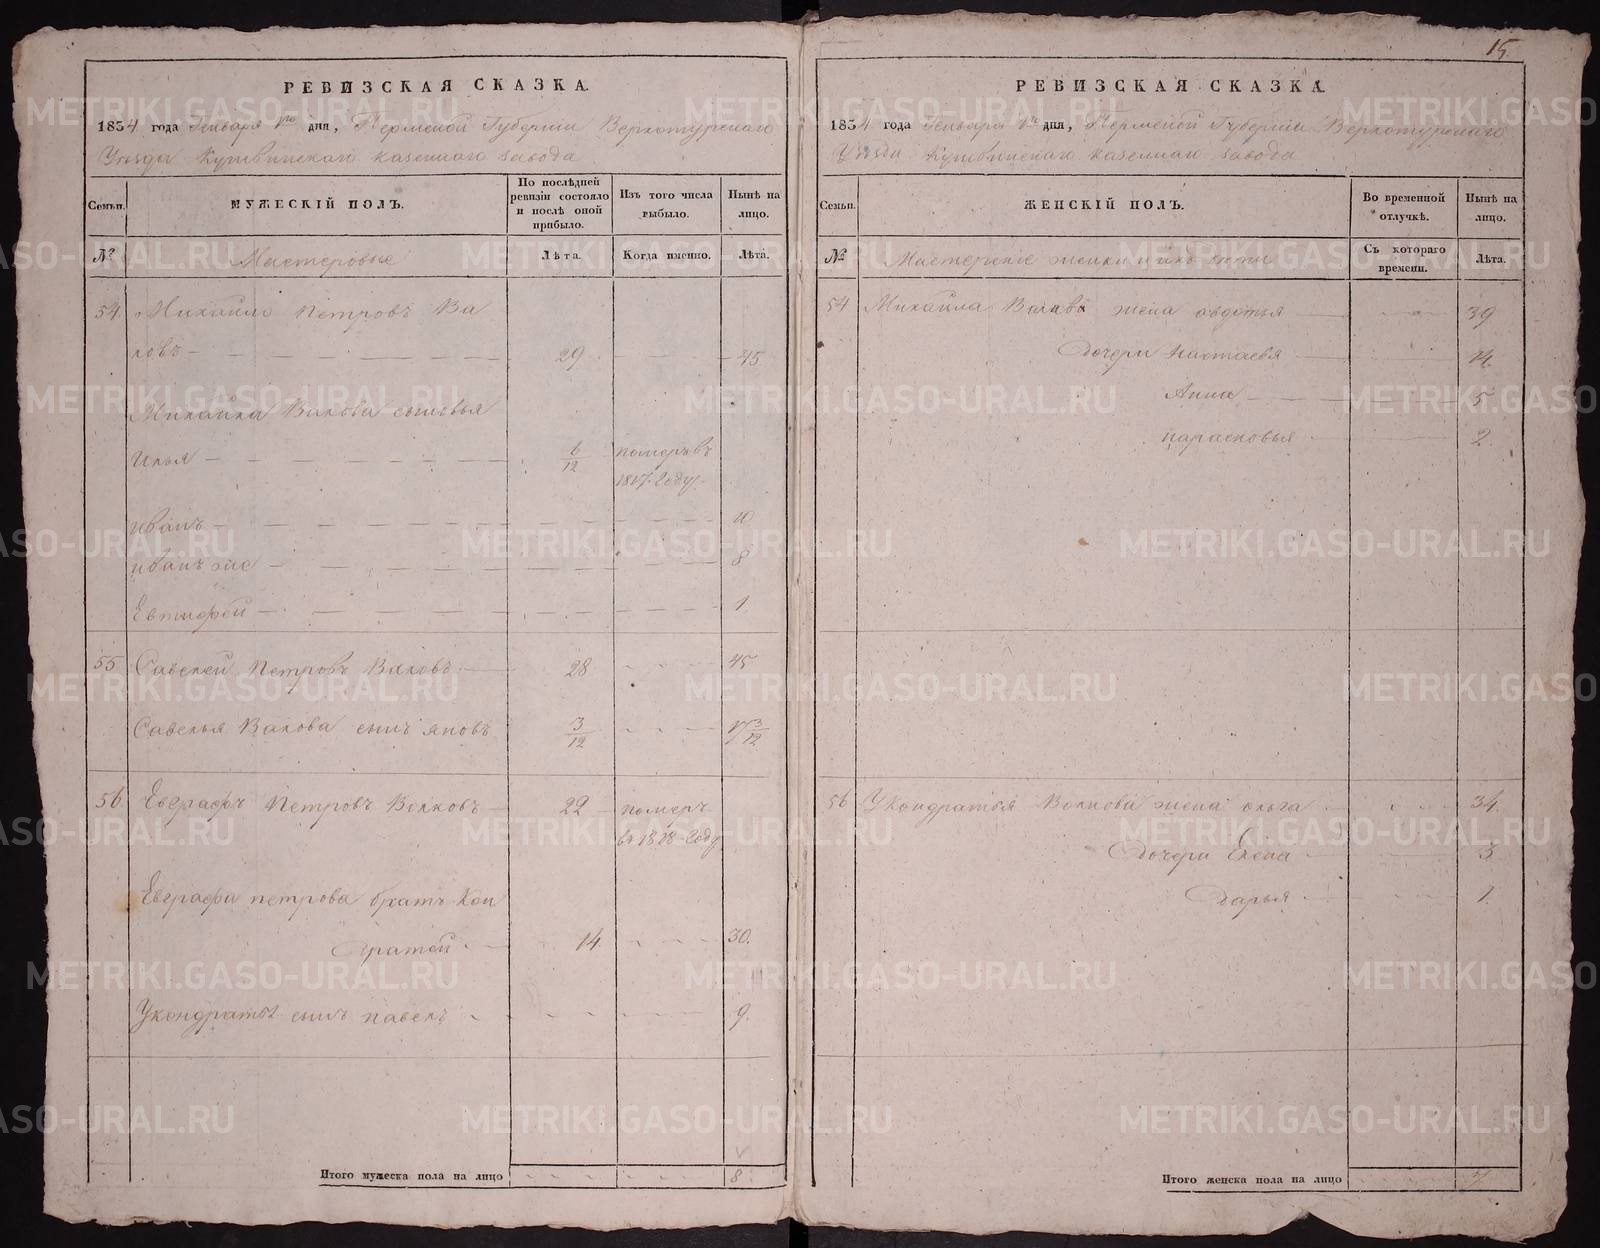 РЕВИЗСКАЯ СКАЗКА.
1834 года Генваря 1го дня, Пермской Губернии Верхотурскаго
Уезда Кушвинскаго казеннаго завода
Семьи.
МУЖЕСКІЙ ПОЛЪ.
По послѣдней ревизіи состояло и послѣ оной прибыло.
Изъ того числа выбыло.
Нынѣ на лицо.
№
Мастеровые
Лѣта.
Когда именно.
Лѣта.
54. Михайло Петровъ Ва
ловъ 29 45
Михайла Валова сыновья
Илья 6/12 померъ въ
1817. Году
иванъ 10
иванъ же 8
Евтифей 1
55 Савелей Петровъ Валовъ 28 45
Савелья Валова сынъ яковъ 3/12 17 3/12
56 Евграфъ Петровъ Волковъ 22 померъ
въ 1818 Году
Евграфа петрова братъ Кон
дратей 14. 30.
Укондратья сынъ павелъ 9.
Итого мужеска пола на лицо 8
15.
РЕВИЗСКАЯ СКАЗКА.
1834 года Генваря 1го дня, Пермской Губернии Верхотурскаго
Уезда Кушвинскаго казеннаго завода
Семьи.
ЖЕНСКІЙ ПОЛЪ.
Во временной отлучкѣ.
Нынѣ на лицо.
№
Мастерские женки и ихъ дети
Съ котораго времени.
Лѣта.
54 Михайла Валова жена авдотья 39
Дочери Настасья 14.
Анна 5
парасковья 2
56 Укондратья Волкова жена ольга 34.
Дочери Елена 3
Дарья 1.
Итого женска пола на лицо 7
METRIKI.GASO-URAL.RU